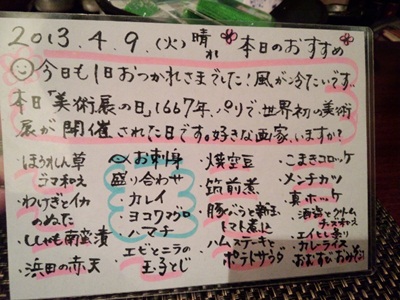 2013.4.9.(火) 晴れ 本日のおすすめ
今日も1日おつかれさまでした!風が冷たいです。
本日「美術展の日」1667年、パリで、世界初の美術
展が開催された日です。好きな画家、いますか?
ほうれん草
ゴマ和え
わけぎとイカ
のぬた
ししゃも南蛮漬
浜田の赤天
お刺身
盛り合わせ
・カレイ
・ヨコワマグロ
・ハマチ
エビとニラの
玉子とじ
・焼空豆
・筑前煮
・豚バラと新玉
トマト煮込
・ハムステーキと
ポテトサラダ
・こまきコロッケ
・メンチカツ
・真ホッケ
・酒盗とクリーム
チーズ和え
・エイヒレ炙り
・カレーライス
おむすび おみそ汁